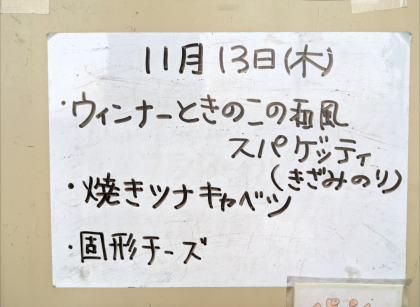 11月13日(木)
・ウィンナーときのこの和風
スパゲッティ
(きざみのり)
・焼きツナキャベツ
・固形チーズ